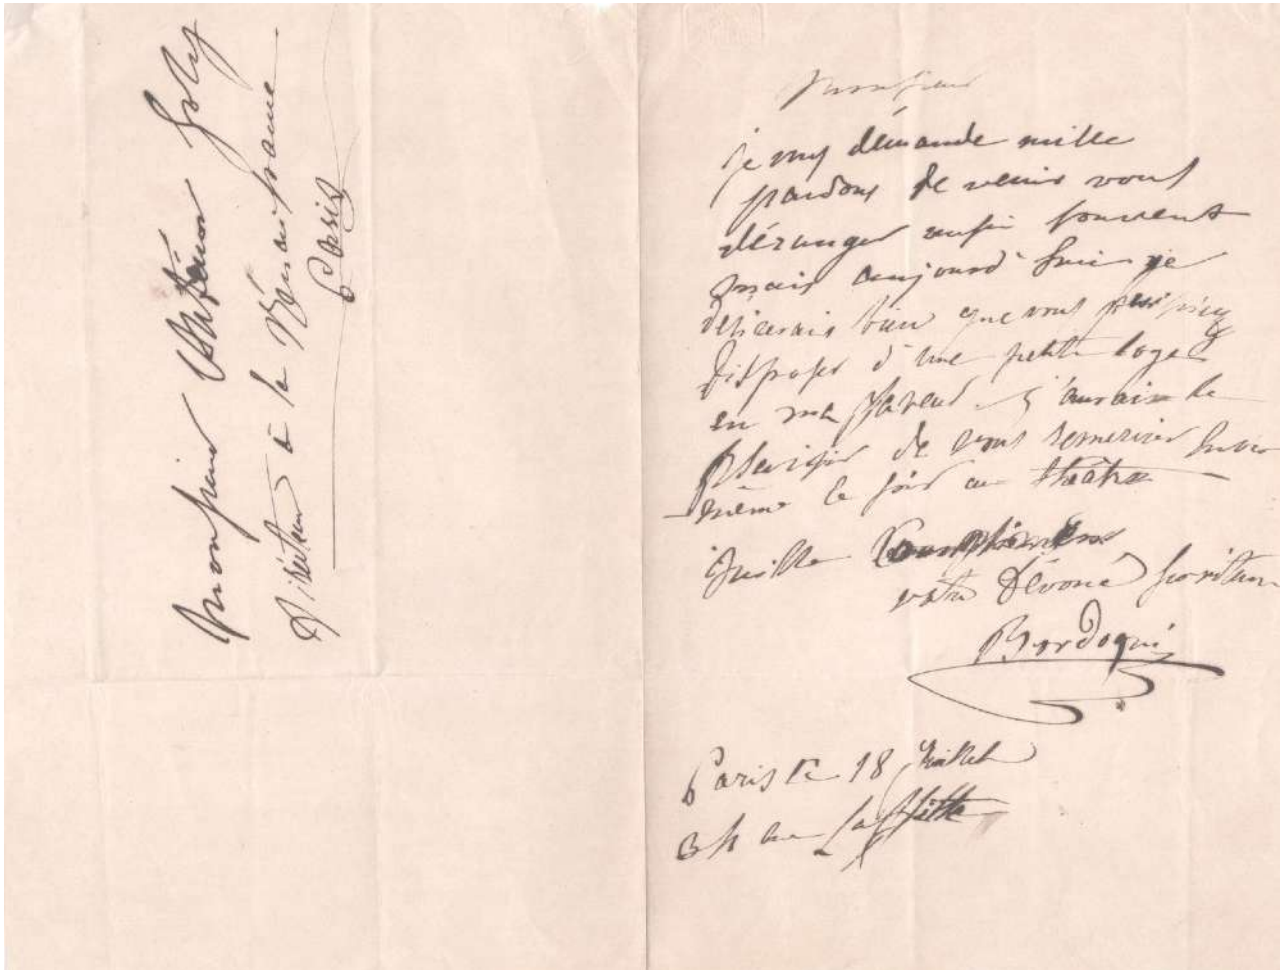 Monsieur Anténor Joly
Directeur à la Rénaissance
Paris
Monsieur
je vous démande mille
pardons de venir vous
déranger aussi souvent
mais aujourd'hui je
désirerais bien que vous puissiez
disposer d'une petite loge
en ma faveur j'aurais le
plaisir de vous remercier
même ce soir au théâtre
mille Complimens
votre Dévoué Serviteur
Bordogni
Paris le 18 Juillet
rue Laffitte